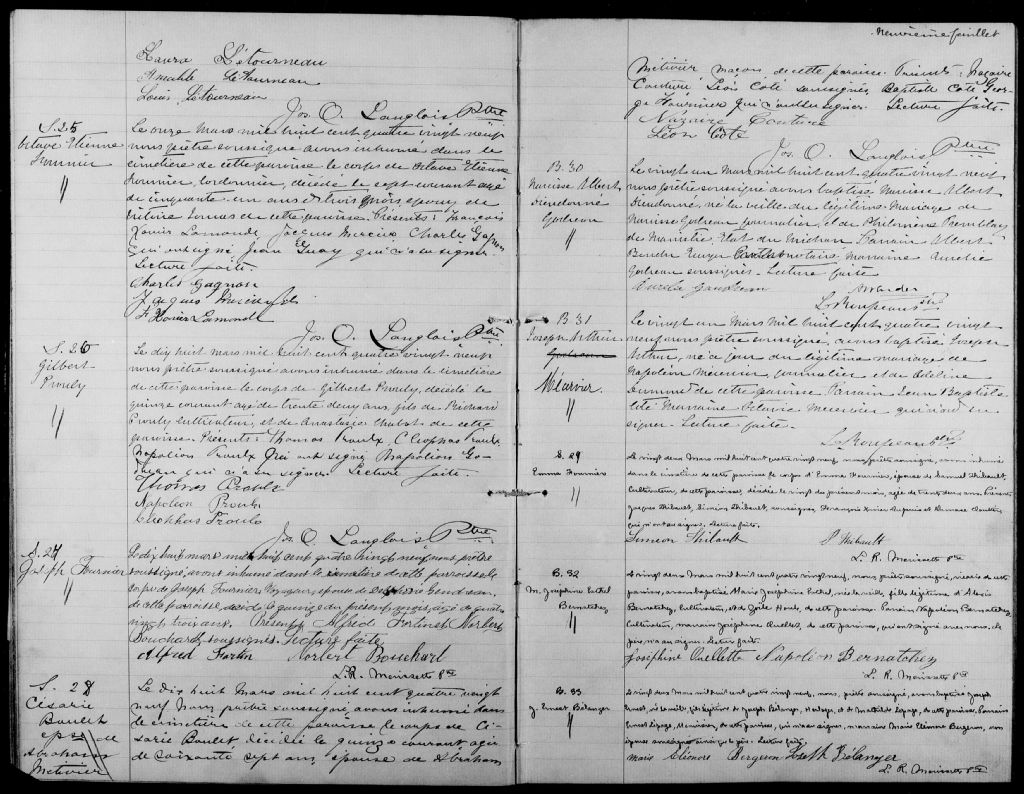 Laura Létourneau
Amable Letourneau
Louis Letourneau
Jos. O. Langlois Ptre
S. 25
Octave Etienne
Fournier
Le onze Mars mil huit cent quatre vingt neuf
nous prêtre soussigné avons inhumé dans le
cimetière de cette paroisse le corps de Octave Etienne
Fournier, cordonnier, décédé le sept courant agé
de cinquante un ans et trois mois, époux de
de cette paroisse. Présents: François
Xavier Lamonde, Jacques Mercier, Charles Gagnon
qui ont signé, Jean Guay qui n'a su signer.
Lecture faite.
Charles Gagnon
Jacques Mercier
F Xavier Lamonde
Jos. O. Langlois Ptre
S. 26
Gilbert
Proulx
Le dix huit mars mil huit cent quatre vingt neuf
nous prêtre soussigné avons inhumé dans le cimetière
de cette paroisse le corps de Gilbert Proulx, décédé le
quinze courant agé de trente deux ans, fils de Richard
Proulx cultivateur, et de Anastasie de cette
paroisse. Présents: Thomas Proulx, Cleophas Proulx
Napoléon Proulx qui ont signé Napoléon
qui n'a su signer Lecture faite.
Thomas Proulx
Napoleon Proulx
Cleophas Proulx
Jos. O. Langlois Ptre
S. 27
Joseph Fournier
Le dix huit mars mil huit cent quatre vingt neuf nous prêtre
soussigné, avons inhumé dans le cimetière de cette paroisse le
corps de Joseph Fournier, Voyageur, époux de Gendron,
de cette paroisse, décédé le quinze du présent mois, agé de quatre
vingt trois ans. Présents Alfred Fortin et Norbert
Bouchard, soussignés. Lecture faite
Alfred Fortin Norbert Bouchard
L. R. Moissette Ptre
S. 28
Césarie
Boulet
epse de
Abraham
Métivier
Le dix huit Mars mil huit cent quatre vingt
neuf Nous, prêtre soussigné avons inhumé dans
le cimetière de cette paroisse le corps de Cé-
sarie Boulet décédée le quinze courant agée
de soixante sept ans, épouse de Abraham
neuvième feuillet
Métivier maçon de cette paroisse. Présents: Nazaire
Couture Léon Coté soussignés Baptiste Coté Geor-
ge Fournier qui n'a su signer. Lecture faite
Nazaire Couture
Léon Coté
Jos. O. Langlois Ptre
B. 30
Narcisse Albert
Dieudonné
Godreau
Le vingt un Mars mil huit cent quatre vingt neuf
nous prêtre soussigné avons baptisé Narcisse Albert
Dieudonné, né la veille du légitime mariage de
Narcisse Godreau journalier, et de Philomène Tremblay
de Manistee, Etat du Michigan Parrain Albert
notaire, marraine Aurélie
Godreau soussignés. Lecture faite
Aurelie Gaudreau
L. Rousseau Ptre
B. 31
Joseph Arthur
Mercier
Le vingt un Mars mil huit cent quatre vingt
neuf nous prêtre soussigné, avons baptisé Joseph
Arthur, né ce jour du légitime mariage de
Napoléon Mercier, journalier et de Adeline
de cette paroisse Parrain Jean Baptiste
Coté Marraine Octavie Mercier qui n'ont su
signer. Lecture faite.
L. Rousseau Ptre
S. 29
Emma Fournier
Le vingt deux Mars mil huit cent quatre vingt neuf, nous, prêtre soussigné, avons inhumé
dans le cimetière de cette paroisse le corps d'Emma Fournier, épouse de Samuel Thibault,
Cultivateur, de cette paroisse, décédée le vingt du présent mois, agée de trente deux ans. Présents
Jacques Thibault, Siméon Thibault, soussignés, François Xavier et Ouellet
qui n'ont su signer. Lecture faite.
Simeon Thibault J Thibault
L. R. Moissette Ptre
B. 32
M. Josephine Ethel
Bernatchez
Le vingt deux Mars mil huit cent quatre vingt neuf, nous, prêtre soussigné, vicaire de cette
paroisse, avons baptisé Marie Josephine Ethel, née la veille, fille légitime d'Alexis
Bernatchez, Cultivateur, et de Zoé de cette paroisse. Parrain Napoléon Bernatchez,
Cultivateur, marraine Joséphine Ouellet, de cette paroisse, qui ont signé avec nous. Le
père n'a su signer. Lecture faite.
Joséphine Ouellette Napoléon Bernatchez
L. R. Moissette Ptre
B. 33
J. Ernest Bélanger
Le vingt deux Mars mil huit cent quatre vingt neuf, nous, prêtre soussigné, avons baptisé Joseph
Ernest, né la veille, fils légitime de Joseph Bélanger, et de Lepage, de cette paroisse. Parrain
Ernest Lepage, de cette paroisse, qui n'a su signer, marraine Marie Eléonore Bergeron, sous-
signée ainsi que le père. Lecture faite.
Marie Eléonore Bergeron Joseph Bélanger
L. R. Moissette Ptre